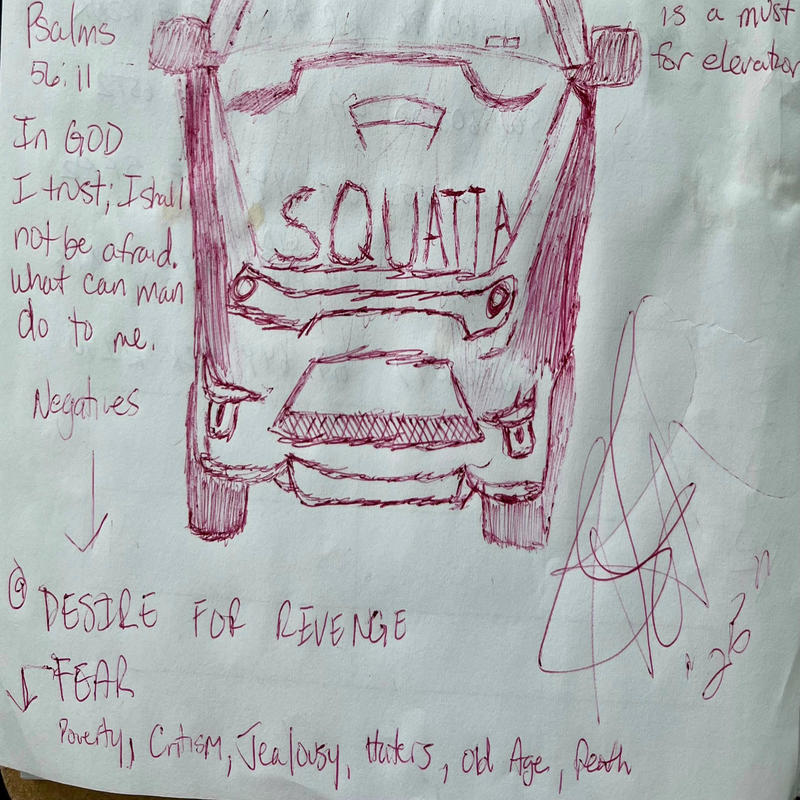 Psalms
56:11
In GOD
I trust; I shall
not be afraid.
What can man
do to me.
is a must
for elevator
SQUATTA
Negatives
@ DESIRE FOR REVENGE
FEAR
Poverty, Critism, Jealousy, Haters, Old Age, Death
"26"